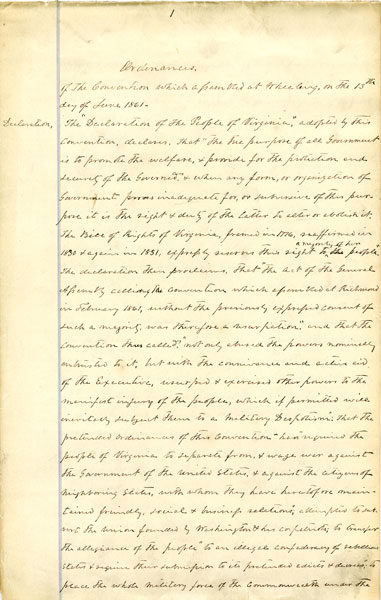 1
Ordinances.
Of The Convention which assembled at Wheeling, on The 13th
day of June 1861.
Declaration,
The "Declaration of The People of Virginia," adopted by this
Convention, declares, That "The true purpose of all Government
is to promote the welfare, & provide for the protection and
security of the Governed," & when any form, or organization of
Government proves inadequate for, or subversive of this pur-
pose it is the right & duty of the latter to alter or abolish it.
The Bill of Rights of Virginia, framed in 1776, reaffirmed in
1830 & again in 1851, expressly reserves this right to a majority of her people".
The declaration then proclaims, That the act of the General
Assembly calling the Convention which assembled at Richmond
in February 1861, without the previously expressed consent of
such a majority was therefore a usurpation", and that the
convention thus called, "not only abused the powers nominally
entrusted to it, but with the connivance and active aid
of the Executive, usurped & exercised other powers to the
manifest injury of the people, which if permitted will
inevitably subject them to a Military Despotism": that the
pretended ordinances of this Convention "has required the
people of Virginia to separate from, & wage war against
the Government of the United States, & against the citizens of
neighboring States, with whom they have heretofore main-
tained friendly, social & business relations", attempted to sub-
vert the Union founded by Washington & his copatriots, to transfer
the allegiance of the people "to an illegal confederacy of rebellious
States & require their submission to its pretended edicts & decrees"; to
place the whole military force of the Commonwealth under the